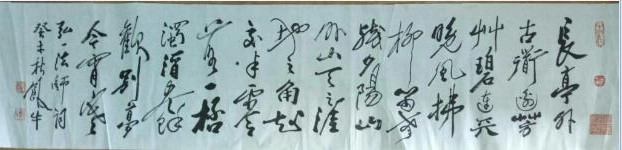 長亭外
古道邊芳
艸碧連天
晚風拂
柳笛聲
殘夕陽山
外山天之涯
地之角知
交半零
落一
濁酒盡餘
歡別夢
今宵寒
弘一法師詞
癸未秋牛